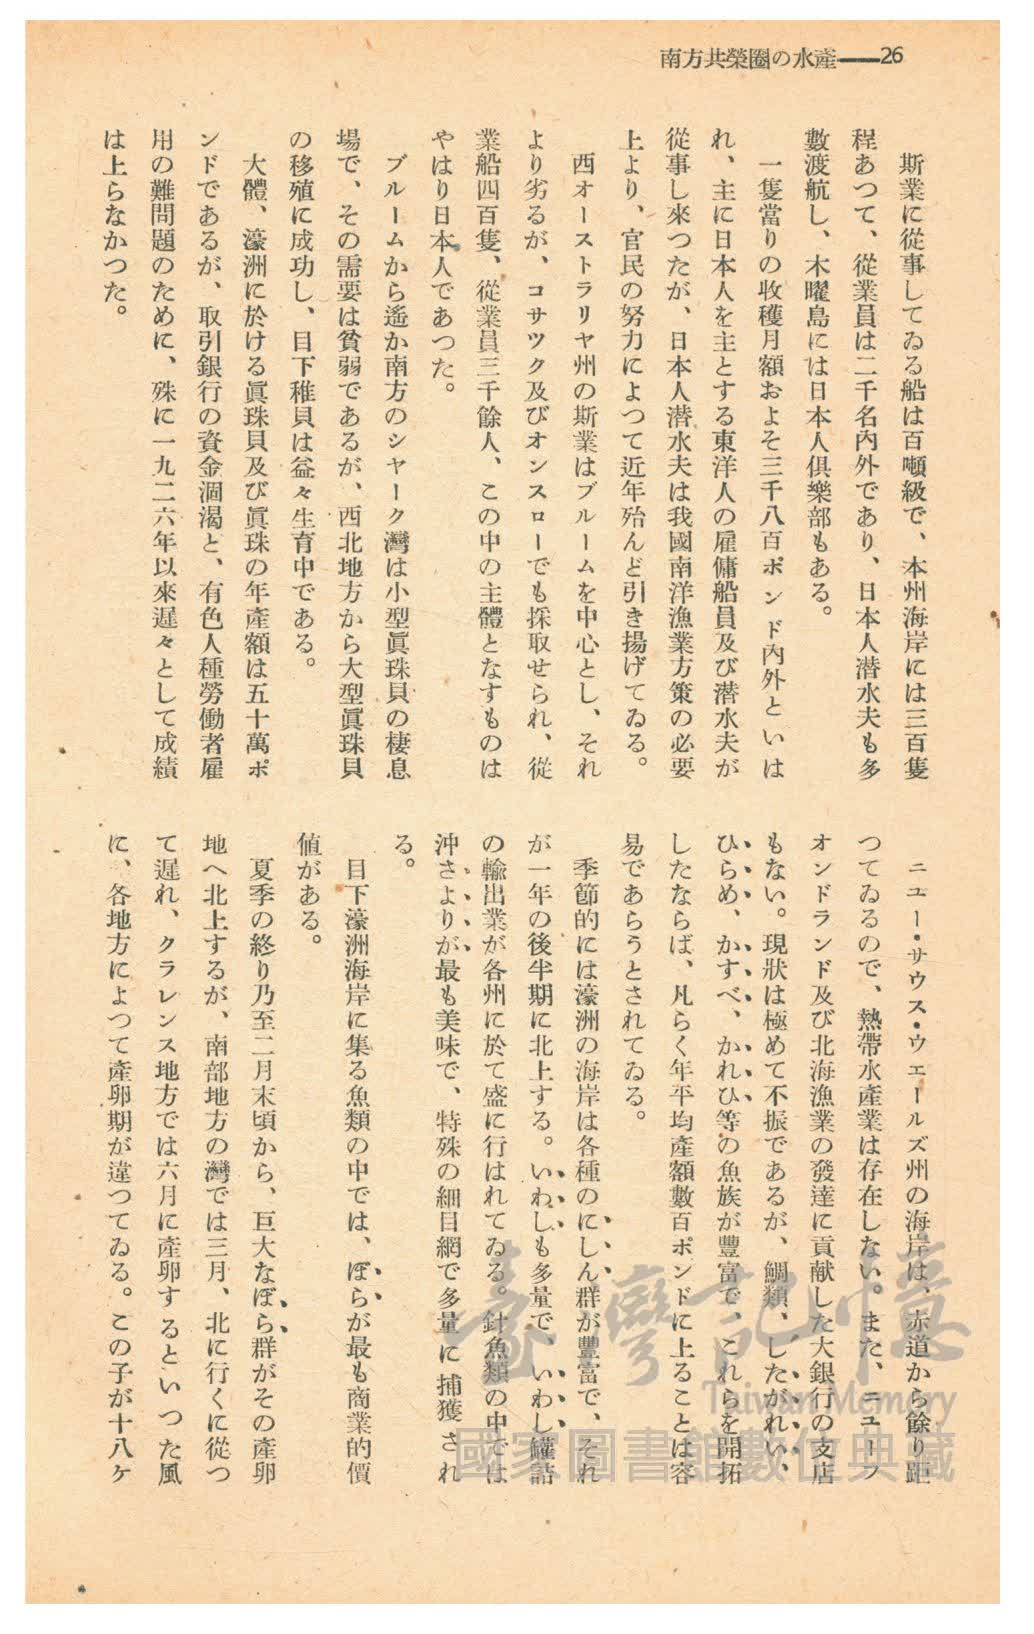 南方共榮圈の水產——26
斯業に從事してゐる船は百噸級で、本州海岸には三百隻
程あつて、從業員は二千名內外であり、日本人潜水夫も多
數渡航し、木曜島には日本人俱樂部もある。
一隻當りの收穫月額およそ三千八百ポンド內外といは
れ、主に日本人を主とする東洋人の雇傭船員及び潜水夫が
從事し來つたが、日本人潜水夫は我國南洋漁業方策の必要
上より、官民の努力によつて近年殆んど引き揚げてゐる。
西オーストラリヤ州の斯業はブルームを中心とし、それ
より劣るが、コサツク及びオンスローでも採取せられ、從
業船四百隻、從業員三千餘人、この中の主體となすものは
やはり日本人であつた。
ブルームから遙か南方のシヤーク灣は小型眞珠貝の棲息
場で、その需要は貧弱であるが、西北地方から大型眞珠貝
の移殖に成功し、目下稚貝は益々生育中である。
大體、濠洲に於ける眞珠貝及び眞珠の年產額は五十萬ポ
ンドであるが、取引銀行の資金涸渴と、有色人種勞働者雇
用の難問題のために、殊に一九二六年以來遲々として成績
は上らなかつた。
ニユー・サウス・ウエールズ州の海岸は、赤道から餘り距
つてゐるので、熱帶水產業は存在しない。また、ニユーフ
オンドランド及び北海漁業の發達に貢献した大銀行の支店
もない。現狀は極めて不振であるが、鯛類、したがれい、
ひらめ、かすべ、かれひ等の魚族が豐富で、これらを開拓
したならば、凡らく年平均產額數百ポンドに上ることは容
易であらうとされてゐる。
季節的には濠洲の海岸は各種のにしん群が豐富で、それ
が一年の後半期に北上する。いわしも多量で、いわし罐詰
の輸出業が各州に於て盛に行はれてゐる。針魚類の中では
沖さよりが最も美味で、特殊の細目網で多量に捕獲され
る。
目下濠洲海岸に集る魚類の中では、ぼらが最も商業的價
値がある。
夏季の終り乃至二月末頃から、巨大なぼら群がその產卵
地へ北上するが、南部地方の灣では三月、北に行くに從つ
て遲れ、クラレンス地方では六月に產卵するといつた風
に、各地方によつて產卵期が違つてゐる。この子が十八ヶ
臺灣記憶
Taiwan Memory
國家圖書館數位典藏